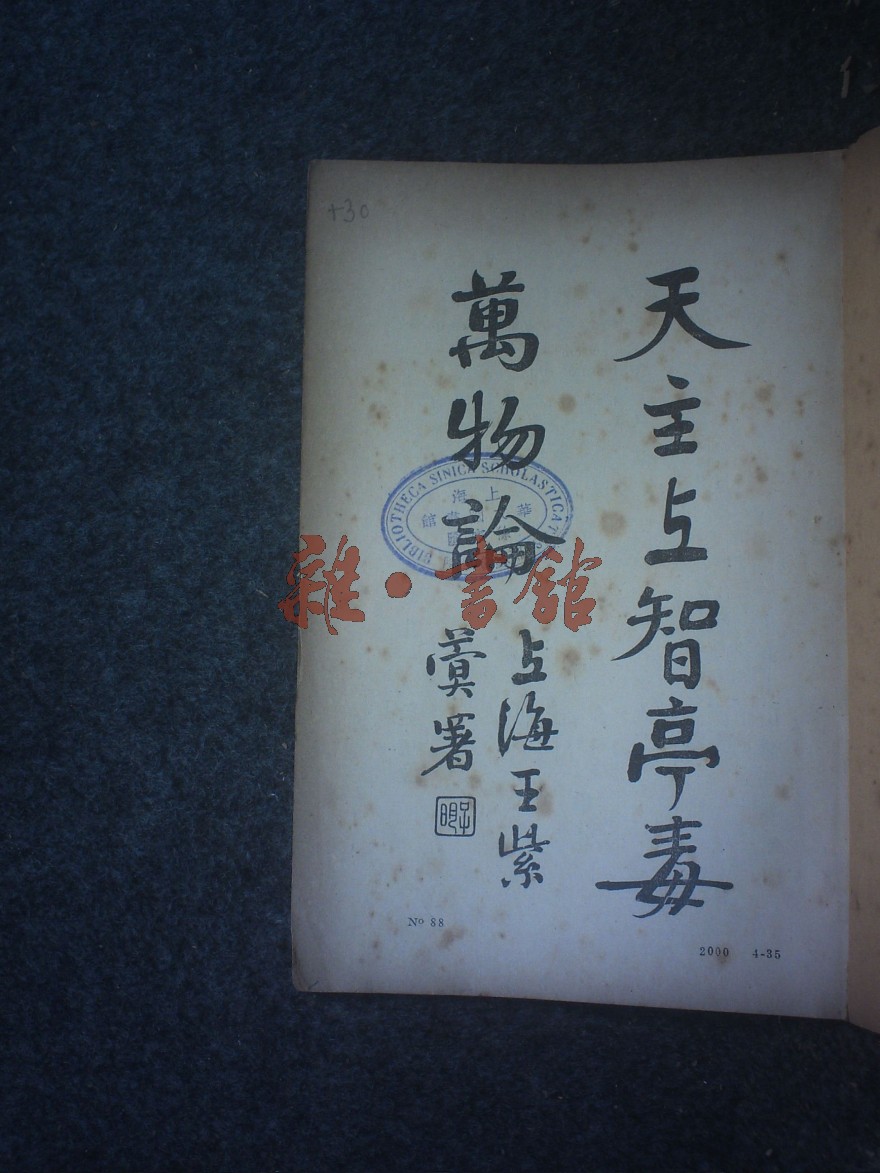 天主上智亭毒
萬物論
上海王紫
蓂署
子明
430
No 88
2000 4-35
BIBLIOTHECA SINICA SCHOLASTICAT
上海
雜·書館